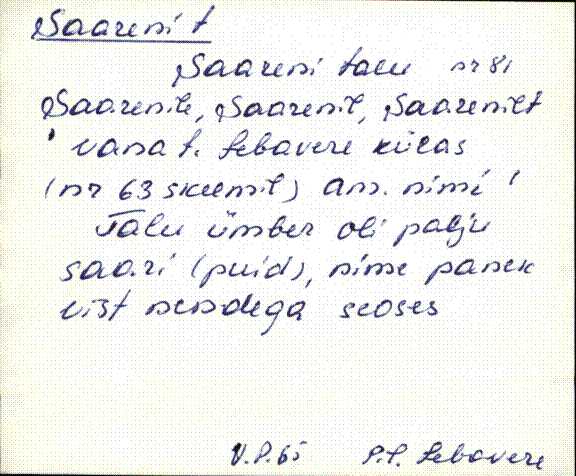 Saareni t
Saareni talu nr 81
Saarenile, Saarenil, Saarenilt
vana t. Lebavere külas
(nr 63 skeemil) am. nimi
Talu ümber oli palju
saari (puid), nime panek
vist nendega seoses
V.P. 65 P.P. Lebavere